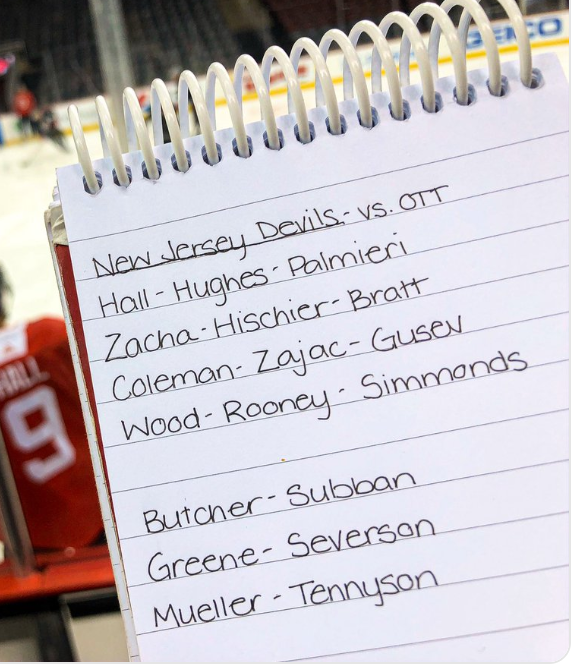 GEICO
New Jersey Devils - vs. OTT
Hall - Hughes - Palmieri
Zacha - Hischier - Bratt
Coleman - Zajac - Gusev
Wood - Rooney - Simmonds
Butcher - Subban
Greene - Severson
Mueller - Tennyson
HALL
9